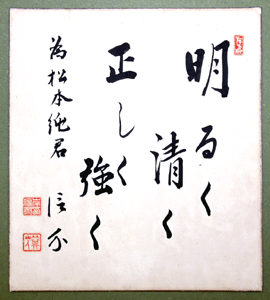 明るく
清く
正しく
強く
為松本純君
信介